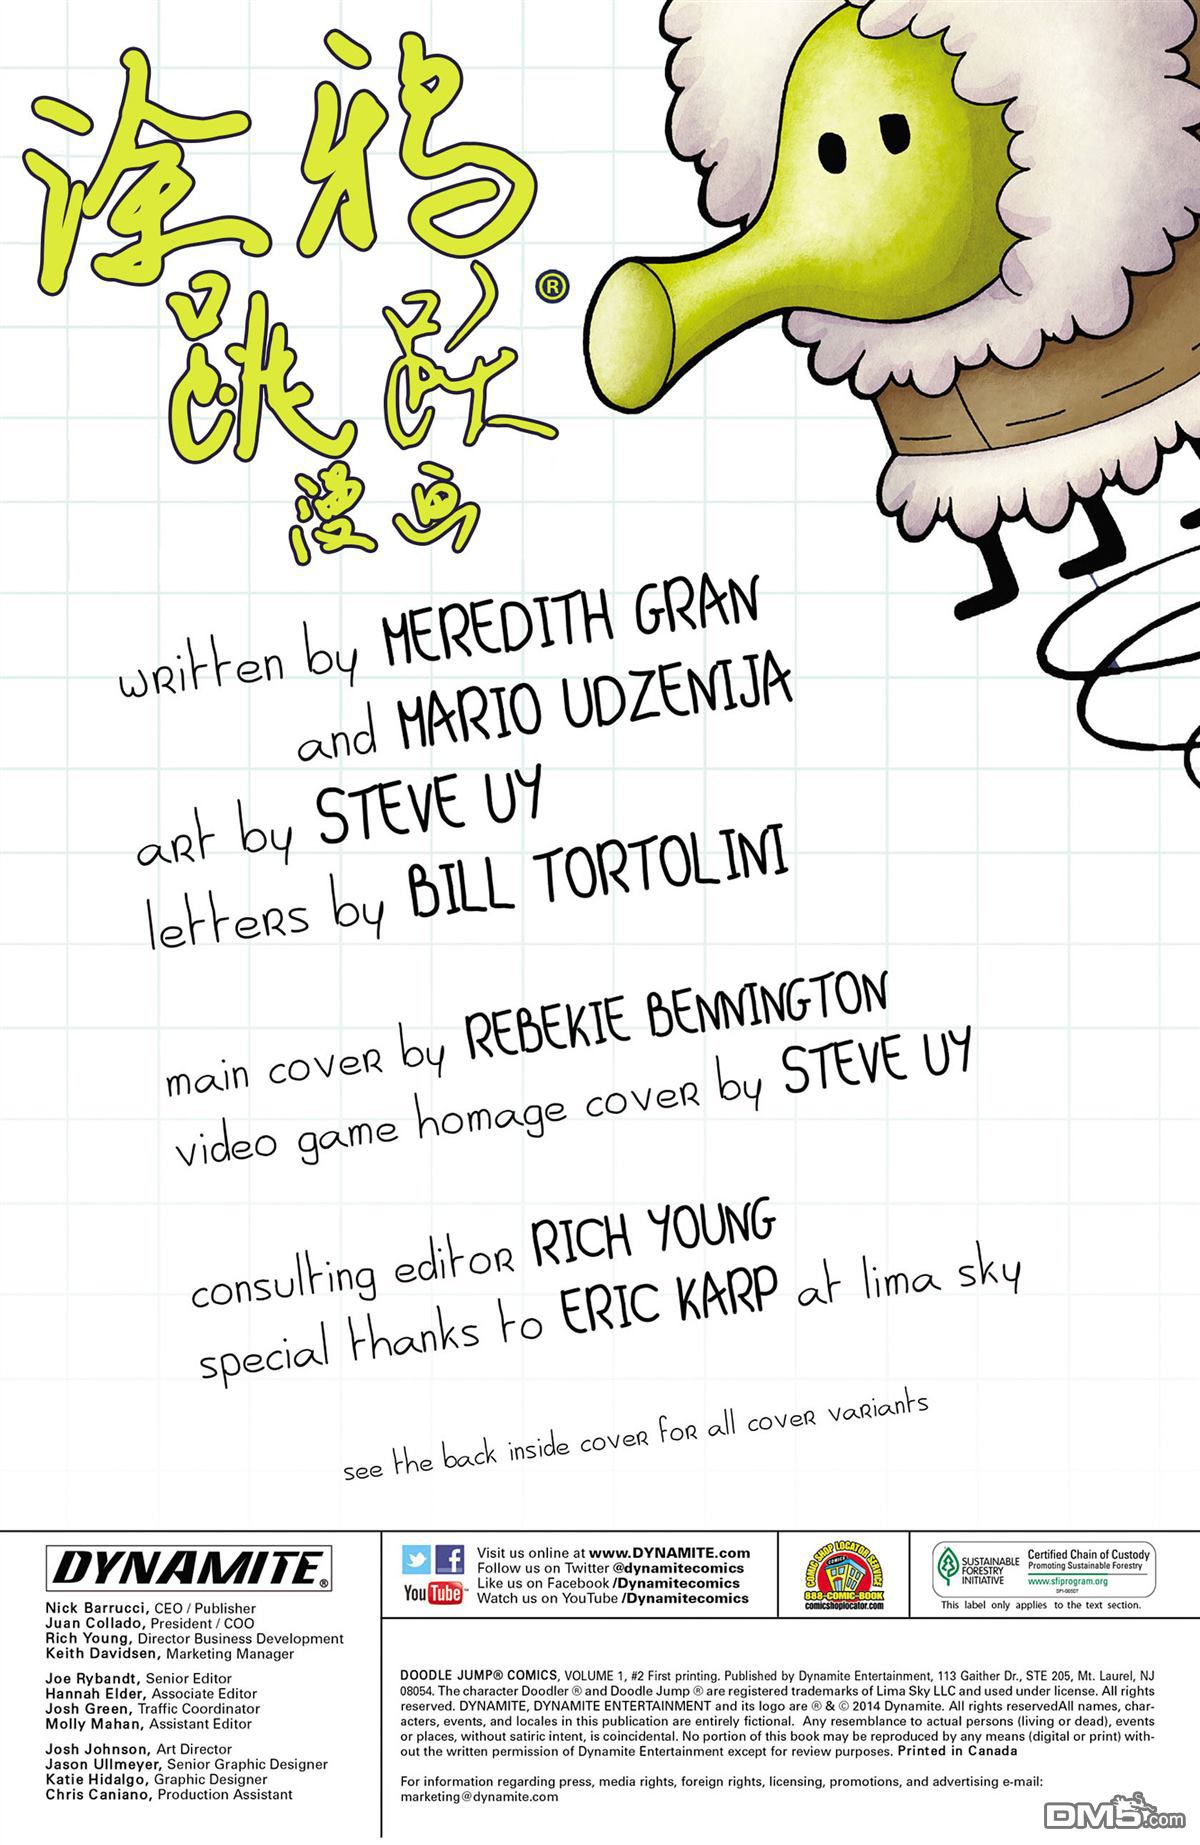 涂鸦
跳跃®
漫画
written by MEREDITH GRAN
and MARIO UDZENIJA
art by STEVE UY
letters by BILL TORTOLINI
main cover by REBEKIE BENNINGTON
video game homage cover by STEVE UY
consulting editor RICH YOUNG
special thanks to ERIC KARP at lima sky
see the back inside cover for all cover variants
DYNAMITE®
Nick Barrucci, CEO / Publisher
Juan Collado, President / COO
Rich Young, Director Business Development
Keith Davidsen, Marketing Manager
Joe Rybandt, Senior Editor
Hannah Elder, Associate Editor
Josh Green, Traffic Coordinator
Molly Mahan, Assistant Editor
Josh Johnson, Art Director
Jason Ullmeyer, Senior Graphic Designer
Katie Hidalgo, Graphic Designer
Chris Caniano, Production Assistant
f
You Tube
Visit us online at www.DYNAMITE.com
Follow us on Twitter @dynamitecomics
Like us on Facebook /Dynamitecomics
Watch us on YouTube /Dynamitecomics
COMIC SHOP LOCATOR SERVICE
COMICS
888-COMIC-BOOK
comicshoplocator.com
SUSTAINABLE
FORESTRY
INITIATIVE
Certified Chain of Custody
Promoting Sustainable Forestry
www.sfiprogram.org
SFI-00507
This label only applies to the text section.
DOODLE JUMP® COMICS, VOLUME 1, #2 First printing. Published by Dynamite Entertainment, 113 Gaither Dr., STE 205, Mt. Laurel, NJ
08054. The character Doodler ® and Doodle Jump ® are registered trademarks of Lima Sky LLC and used under license. All rights
reserved. DYNAMITE, DYNAMITE ENTERTAINMENT and its logo are ® & © 2014 Dynamite. All rights reservedAll names, char-
acters, events, and locales in this publication are entirely fictional. Any resemblance to actual persons (living or dead), events
or places, without satiric intent, is coincidental. No portion of this book may be reproduced by any means (digital or print) with-
out the written permission of Dynamite Entertainment except for review purposes. Printed in Canada
For information regarding press, media rights, foreign rights, licensing, promotions, and advertising e-mail:
marketing@dynamite.com
DM5.com